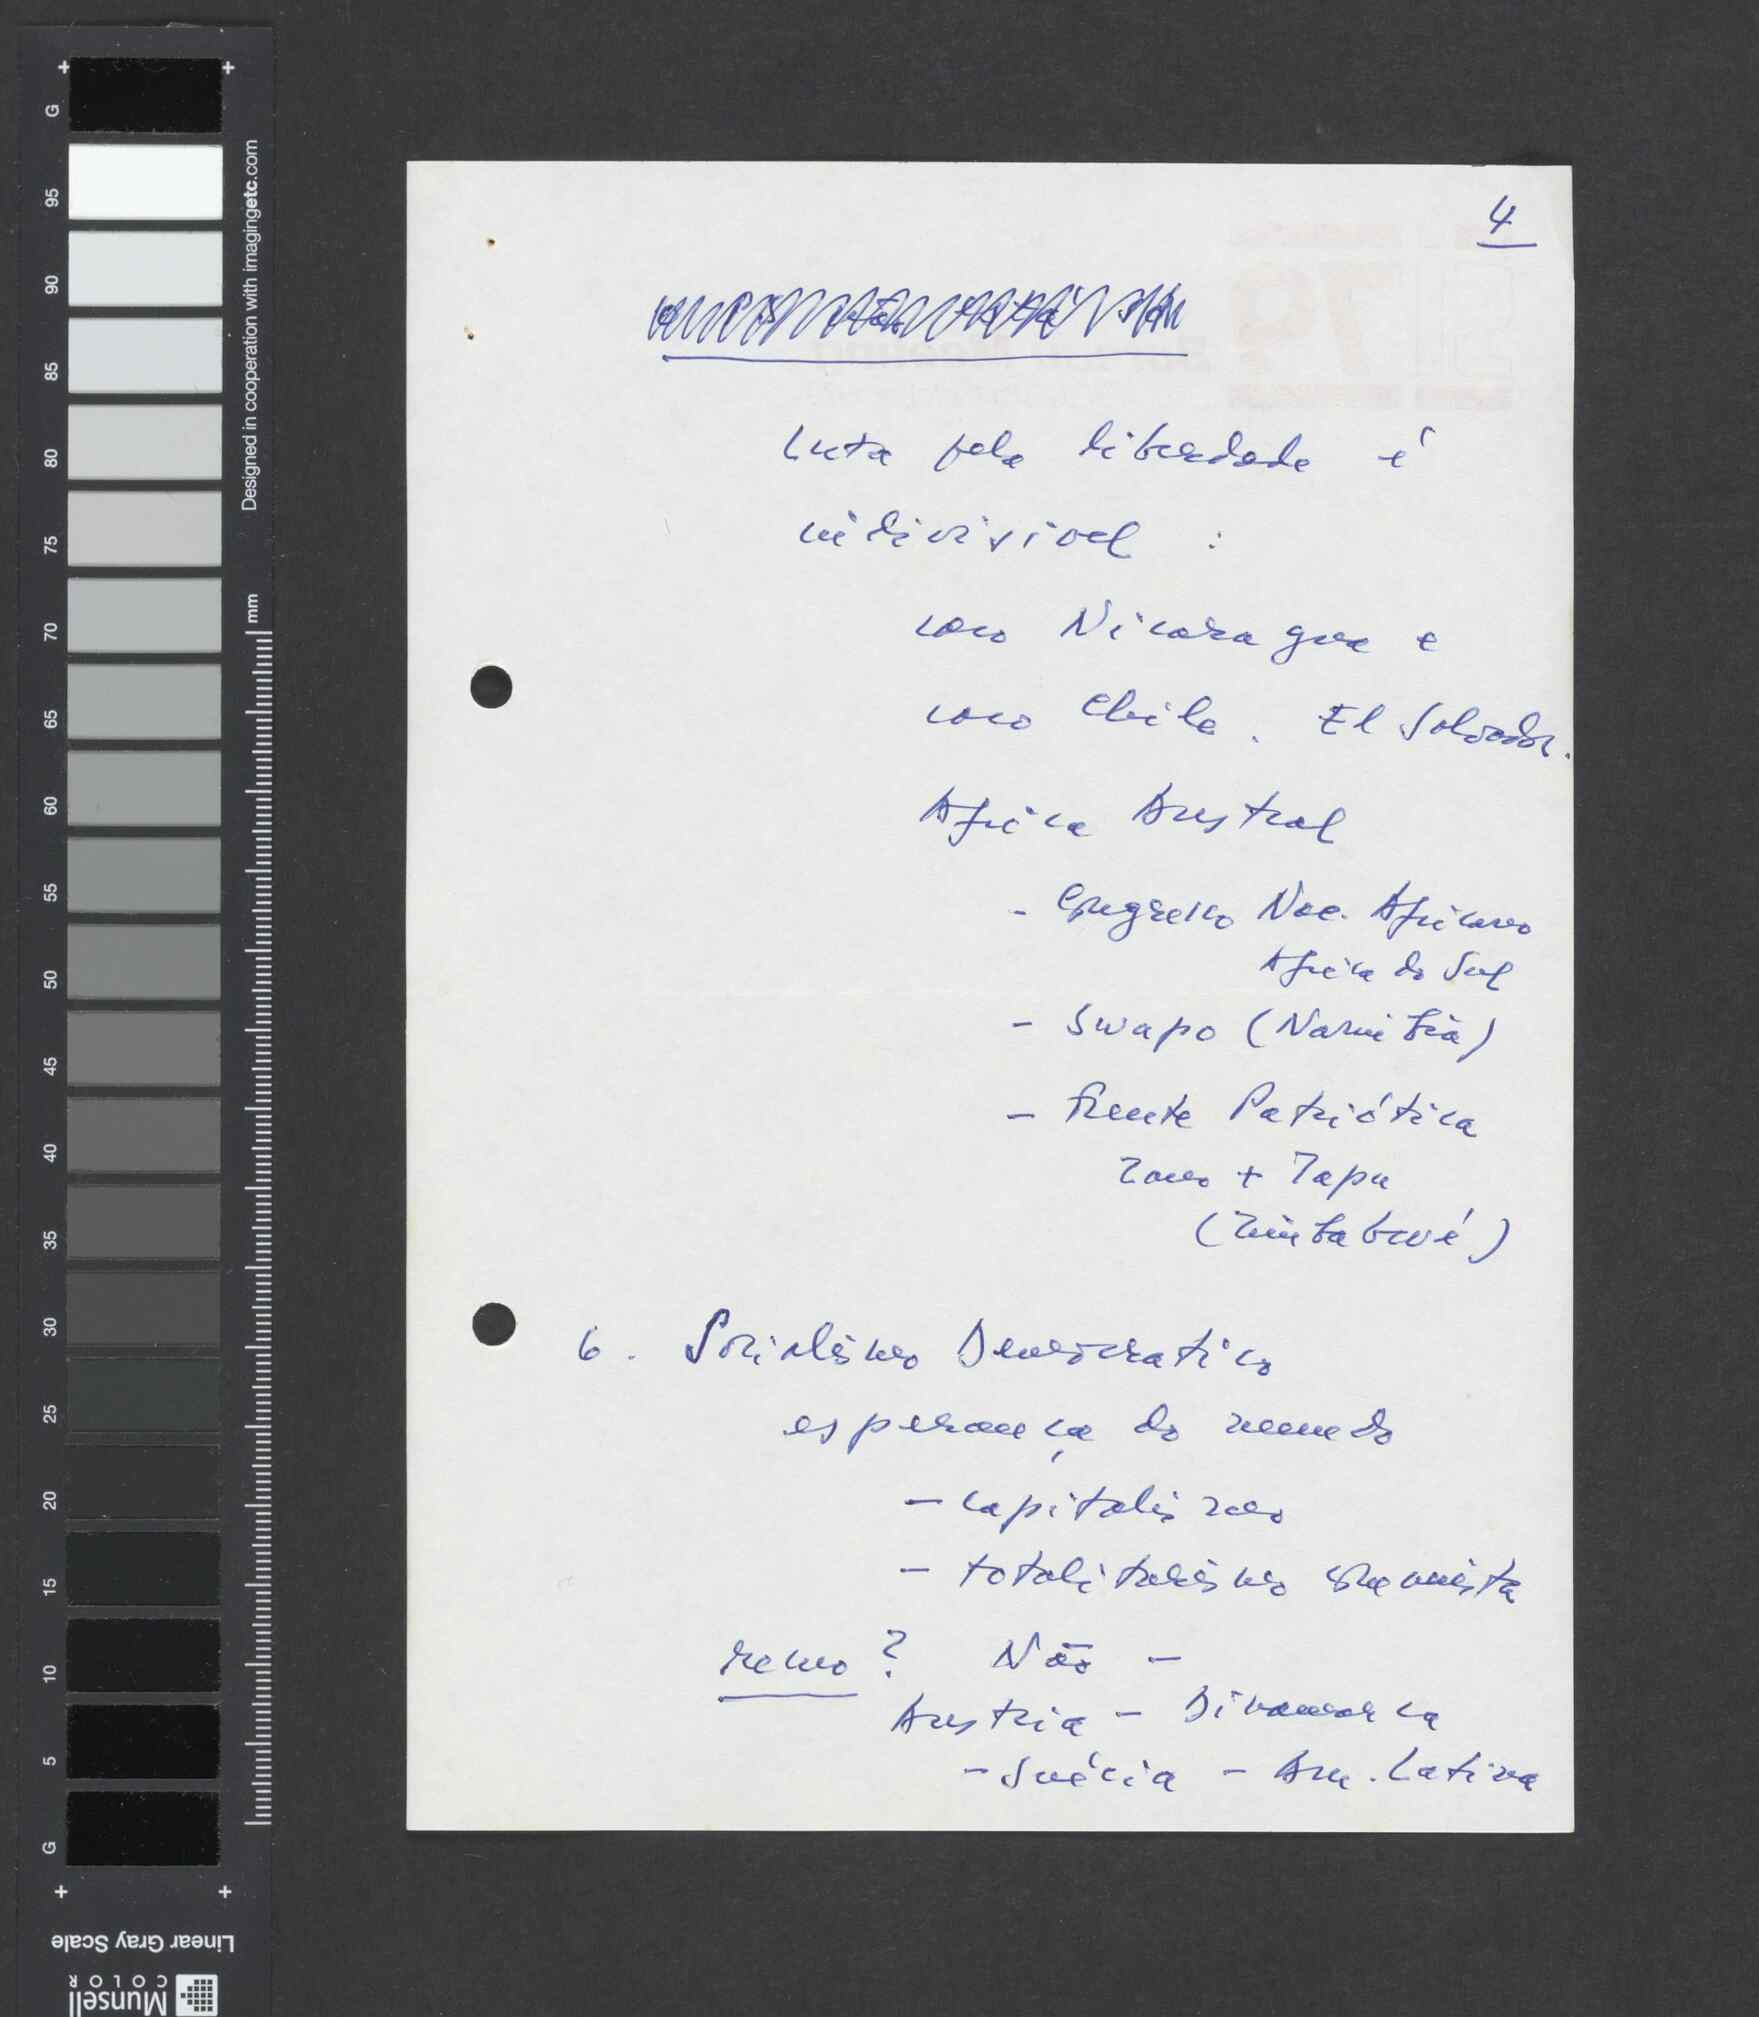 4
Luta pela liberdade é
indivisivel :
com Nicaragua e
com Chile. El Salvador.
Africa Austral
- Congresso Nac. Africano
Africa do Sul
- Swapo (Namibia)
- Frente Patriótica
Zanu + Zapu
(Zimbabwé)
6. Socialismo Democratico
esperança do mundo
- capitalismo
- totalitarismo comunista
recuo? Não -
Austria - Dinamarca
- Suécia - Am. Latina
G
95
90
85
80
75
70
65
60
55
50
45
40
35
30
25
20
15
10
5
G
Designed in cooperation with imagingetc.com
mm
Linear Gray Scale
Munsell
COLOR